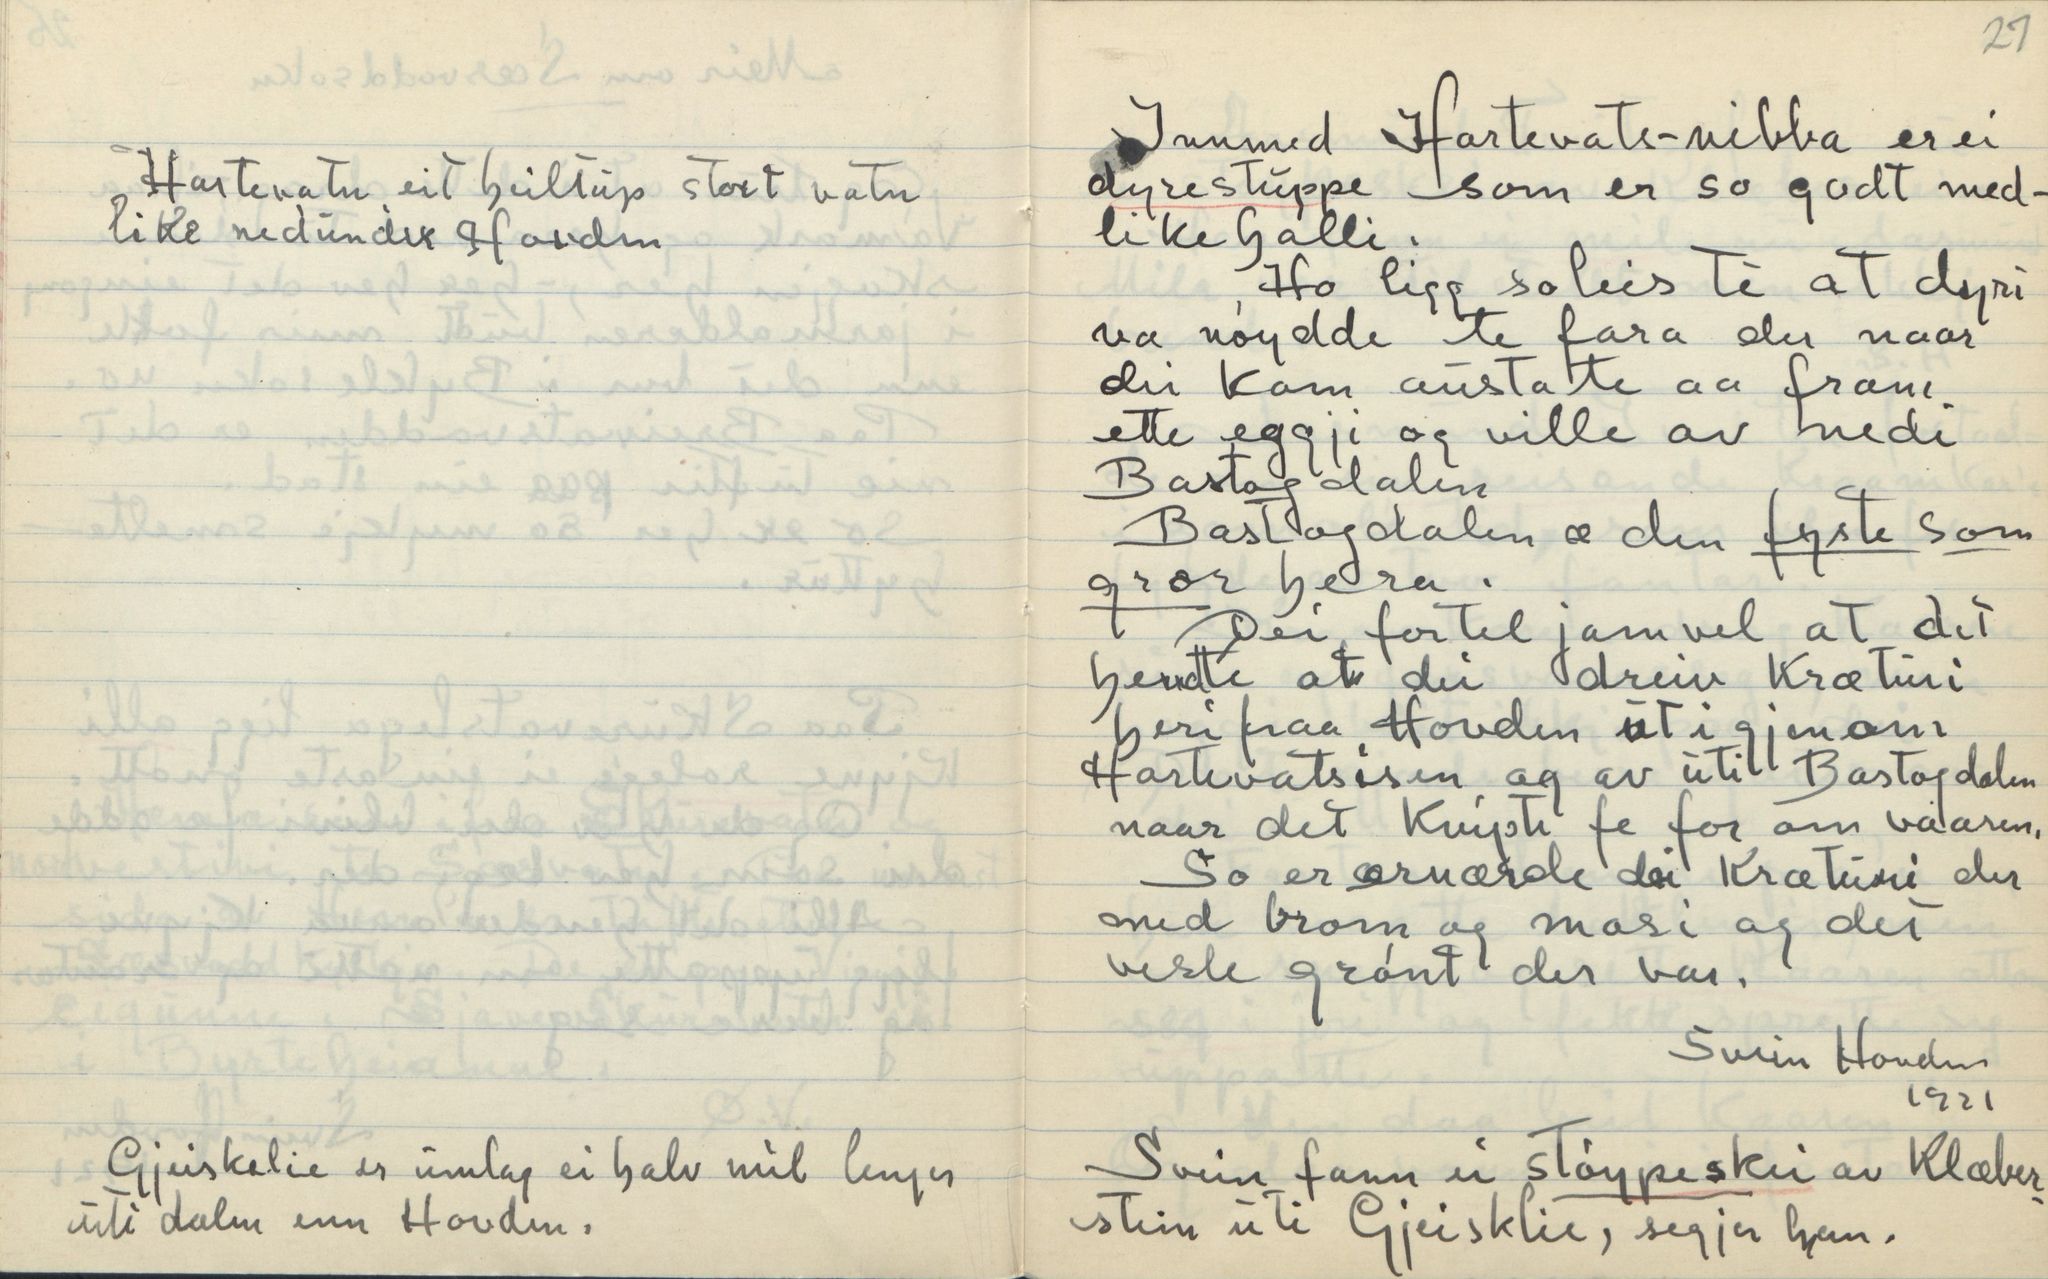 Hartevatn, eit heiltup stort vatn
like nedunder Hovden
Gjeiskelie er umlag ei halv mil lenger
uti dalen enn Hovden.
27
Innmed Hartevats-nibba er ei
dyrestuppe som er so godt med-
like halli.
Ho ligg soleis te at dyri
va nøydde te fara der naar
dei kom austate aa fram
ette eggji og ville av nedi
Bastogdalen
Bastogdalen æ den fyste som
gror hera.
Dei fortel jamvel at det
hendte at dei dreiv krætüri
heri fraa Hovden üt igjenom
Hartevatsisen og av üti Bastogdalen
naar det knipte fe for om vaaren.
So er ernærde dei Krætüri der
med brom og masi og det
vesle grønt der var.
Svein Hovden
1921
Svein fann ei støypeskei av Klæber-
stein üti Gjeisklie, segjer han.